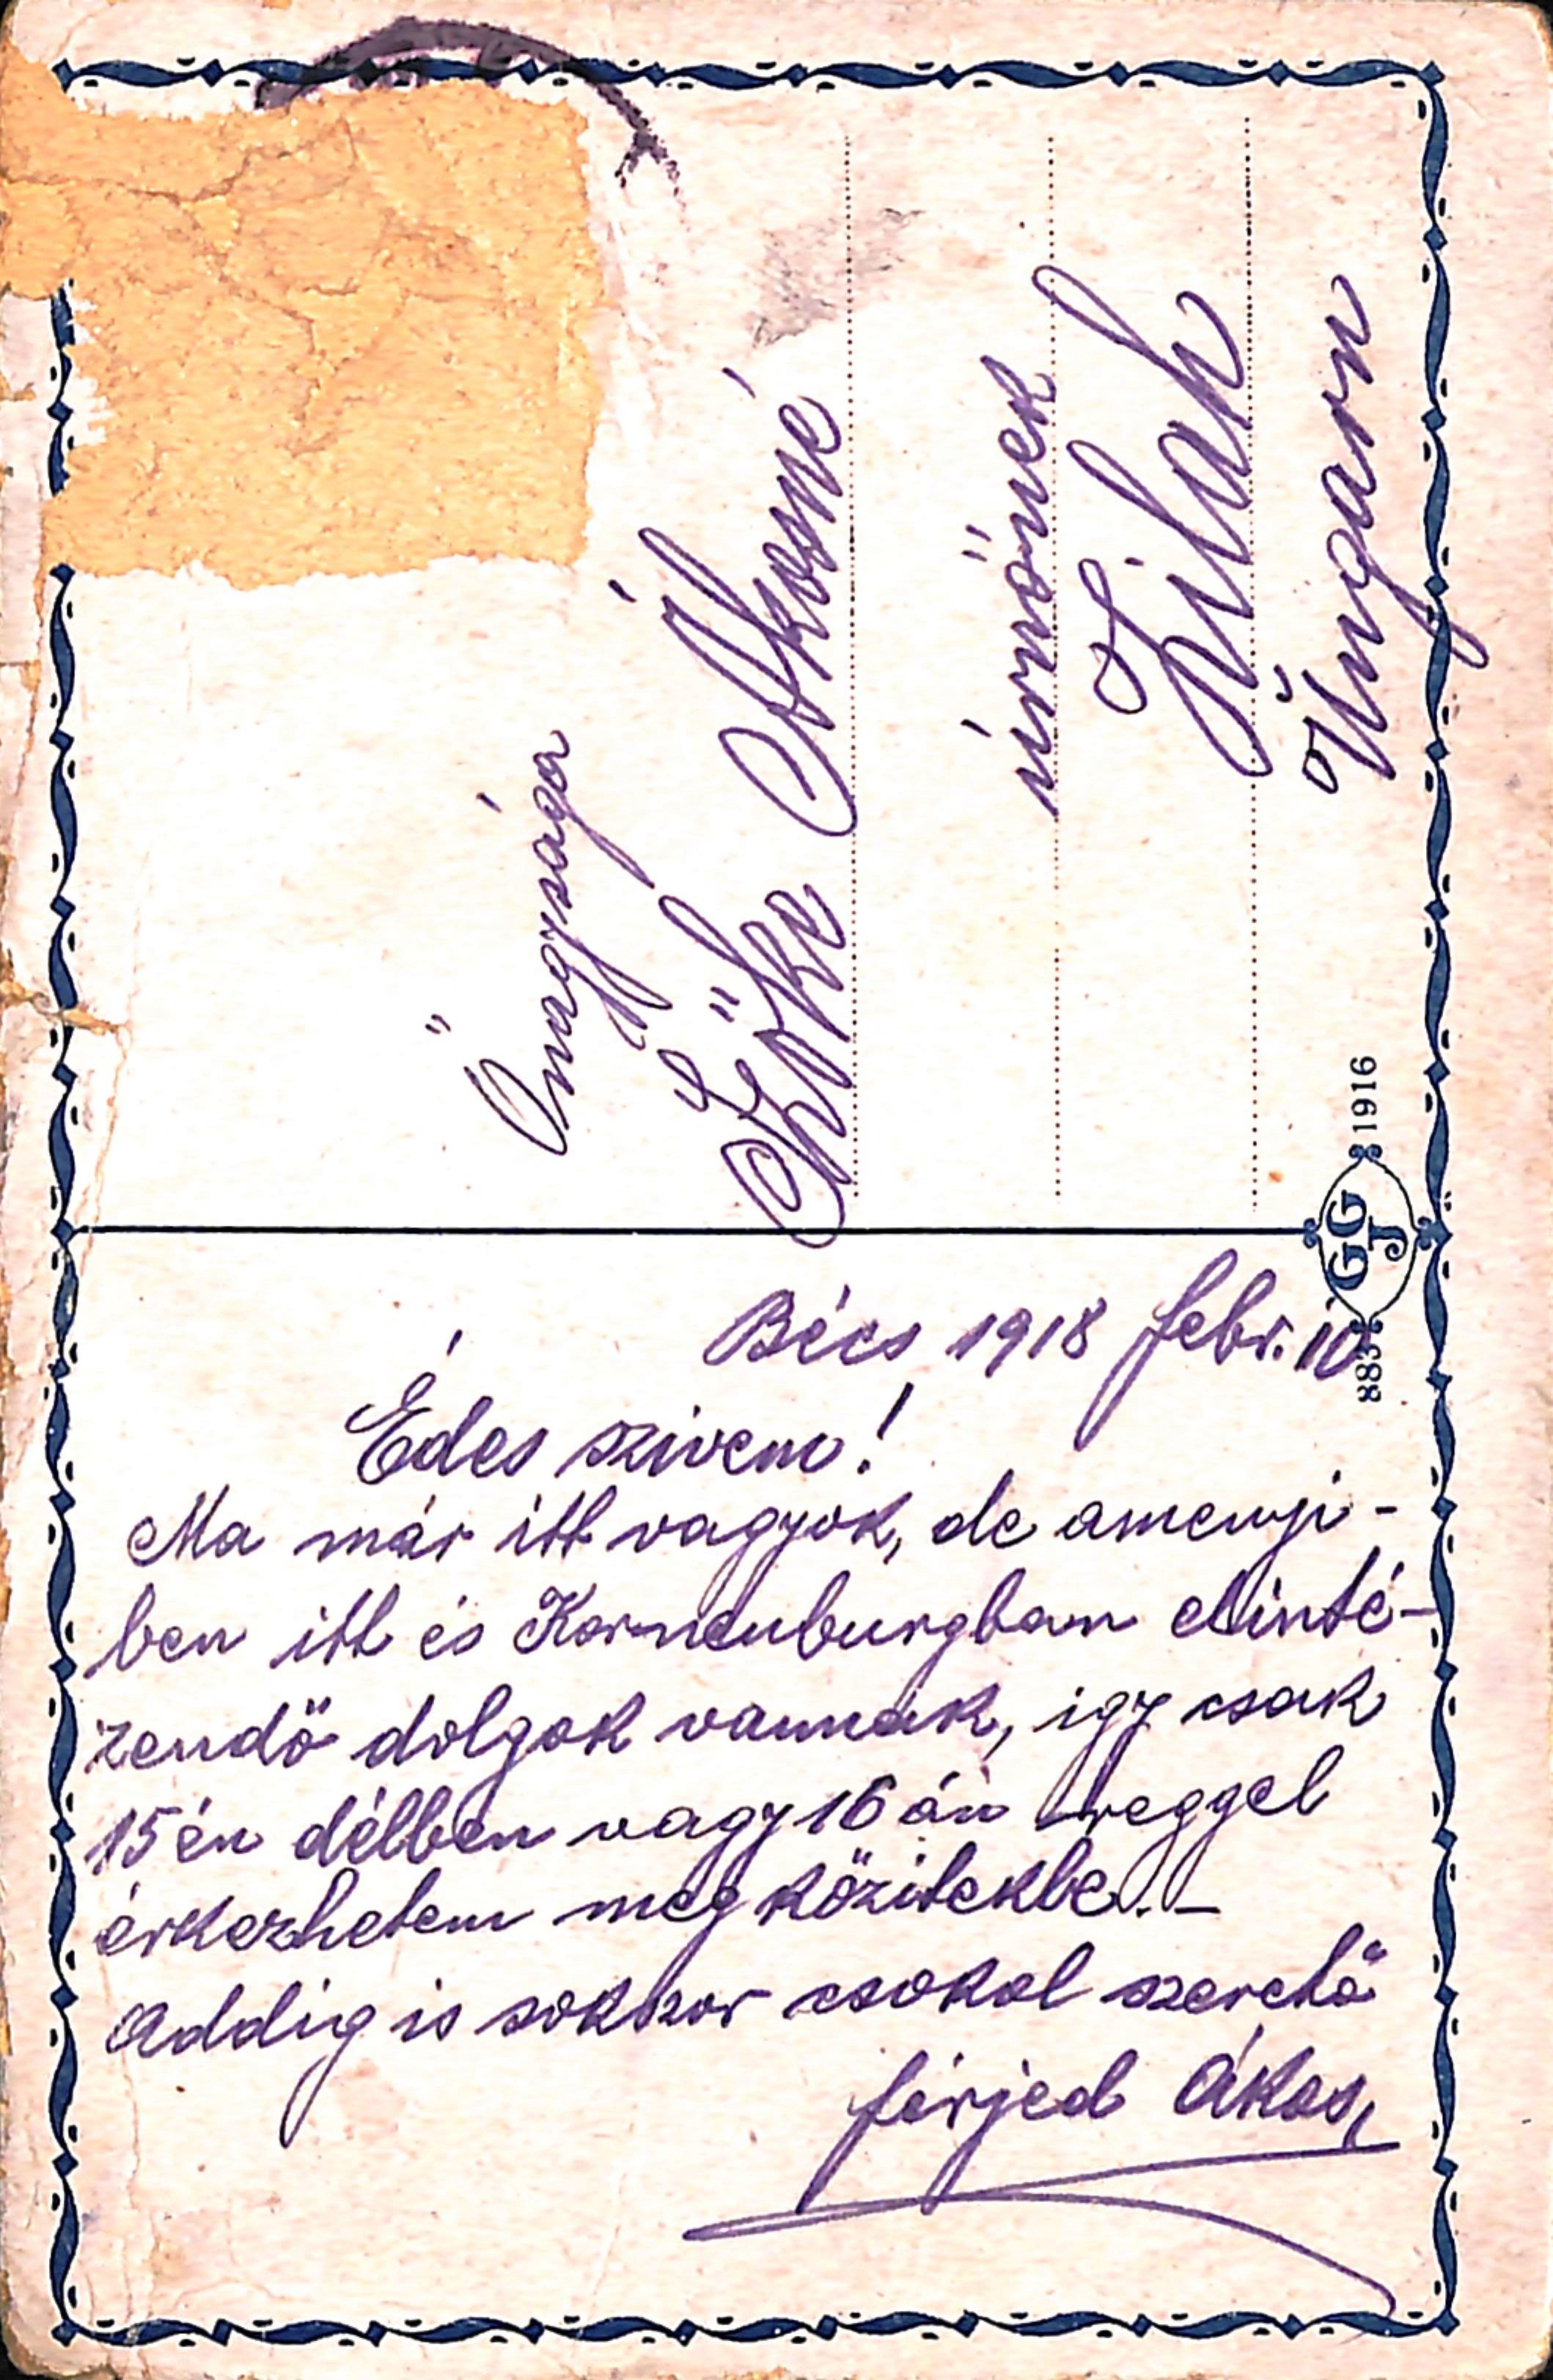 Őnagysága
Szőke Ákosné
úrnőnek
Zilah
Ungarn
GGJ
1916
883
Bécs 1918 febr. 10
Édes szivem!
Ma már itt vagyok, de amenyi-
ben itt és Korneuburgban elinté-
zendő dolgok vannak, igy csak
15 én délben vagy 16 án reggel
érkezhetem meg közitekbe. –
Addig is sokszor csokol szerető
férjed Ákos,